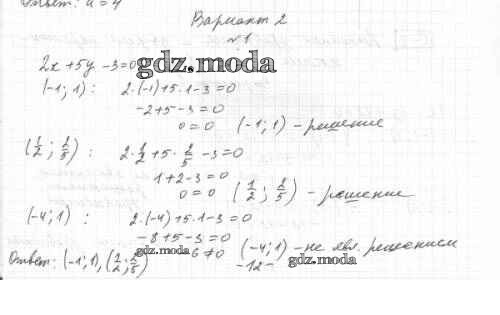 Ответ: a = 4
Вариант 2
№1
2x + 5y - 3 = 0
gdz.moda
(-1; 1) : 2·(-1)+5·1-3=0
-2+5-3=0
0=0 (-1; 1) - решение
(1/2; 2/5) : 2·1/2+5·2/5-3=0
1+2-3=0
0=0 (1/2; 2/5) - решение
(-4; 1) : 2·(-4)+5·1-3=0
-8+5-3=0
6≠0 (-4; 1) - не явл. решением
gdz.moda
Ответ: (-1; 1), (1/2; 2/5)
-12-
gdz.moda